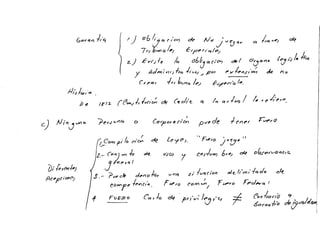 Garantía
1.) Obligación de No juzgar a traves de
Tribunales Especiales
2.) Existe la obligación del organo legislativo
y administrativo, por extensión de no
Crear tribunales Especiales.
Historia.
De 1812 (Constitución de Cadiz a la actual
c) Ninguna Persona o Corporación puede tener Fuero
Diferentes
Acepciones
1.- Compilación de Leyes. "Fuero juzgo"
2.- Conjunto de usos y costumbres de observancia
general
3.- Puede denotar una situación delimitada de
competencia, Fuero común, Fuero Federal
4 FUERO Carta de privilegios ≠ Contrario a
Garantía de igualdad